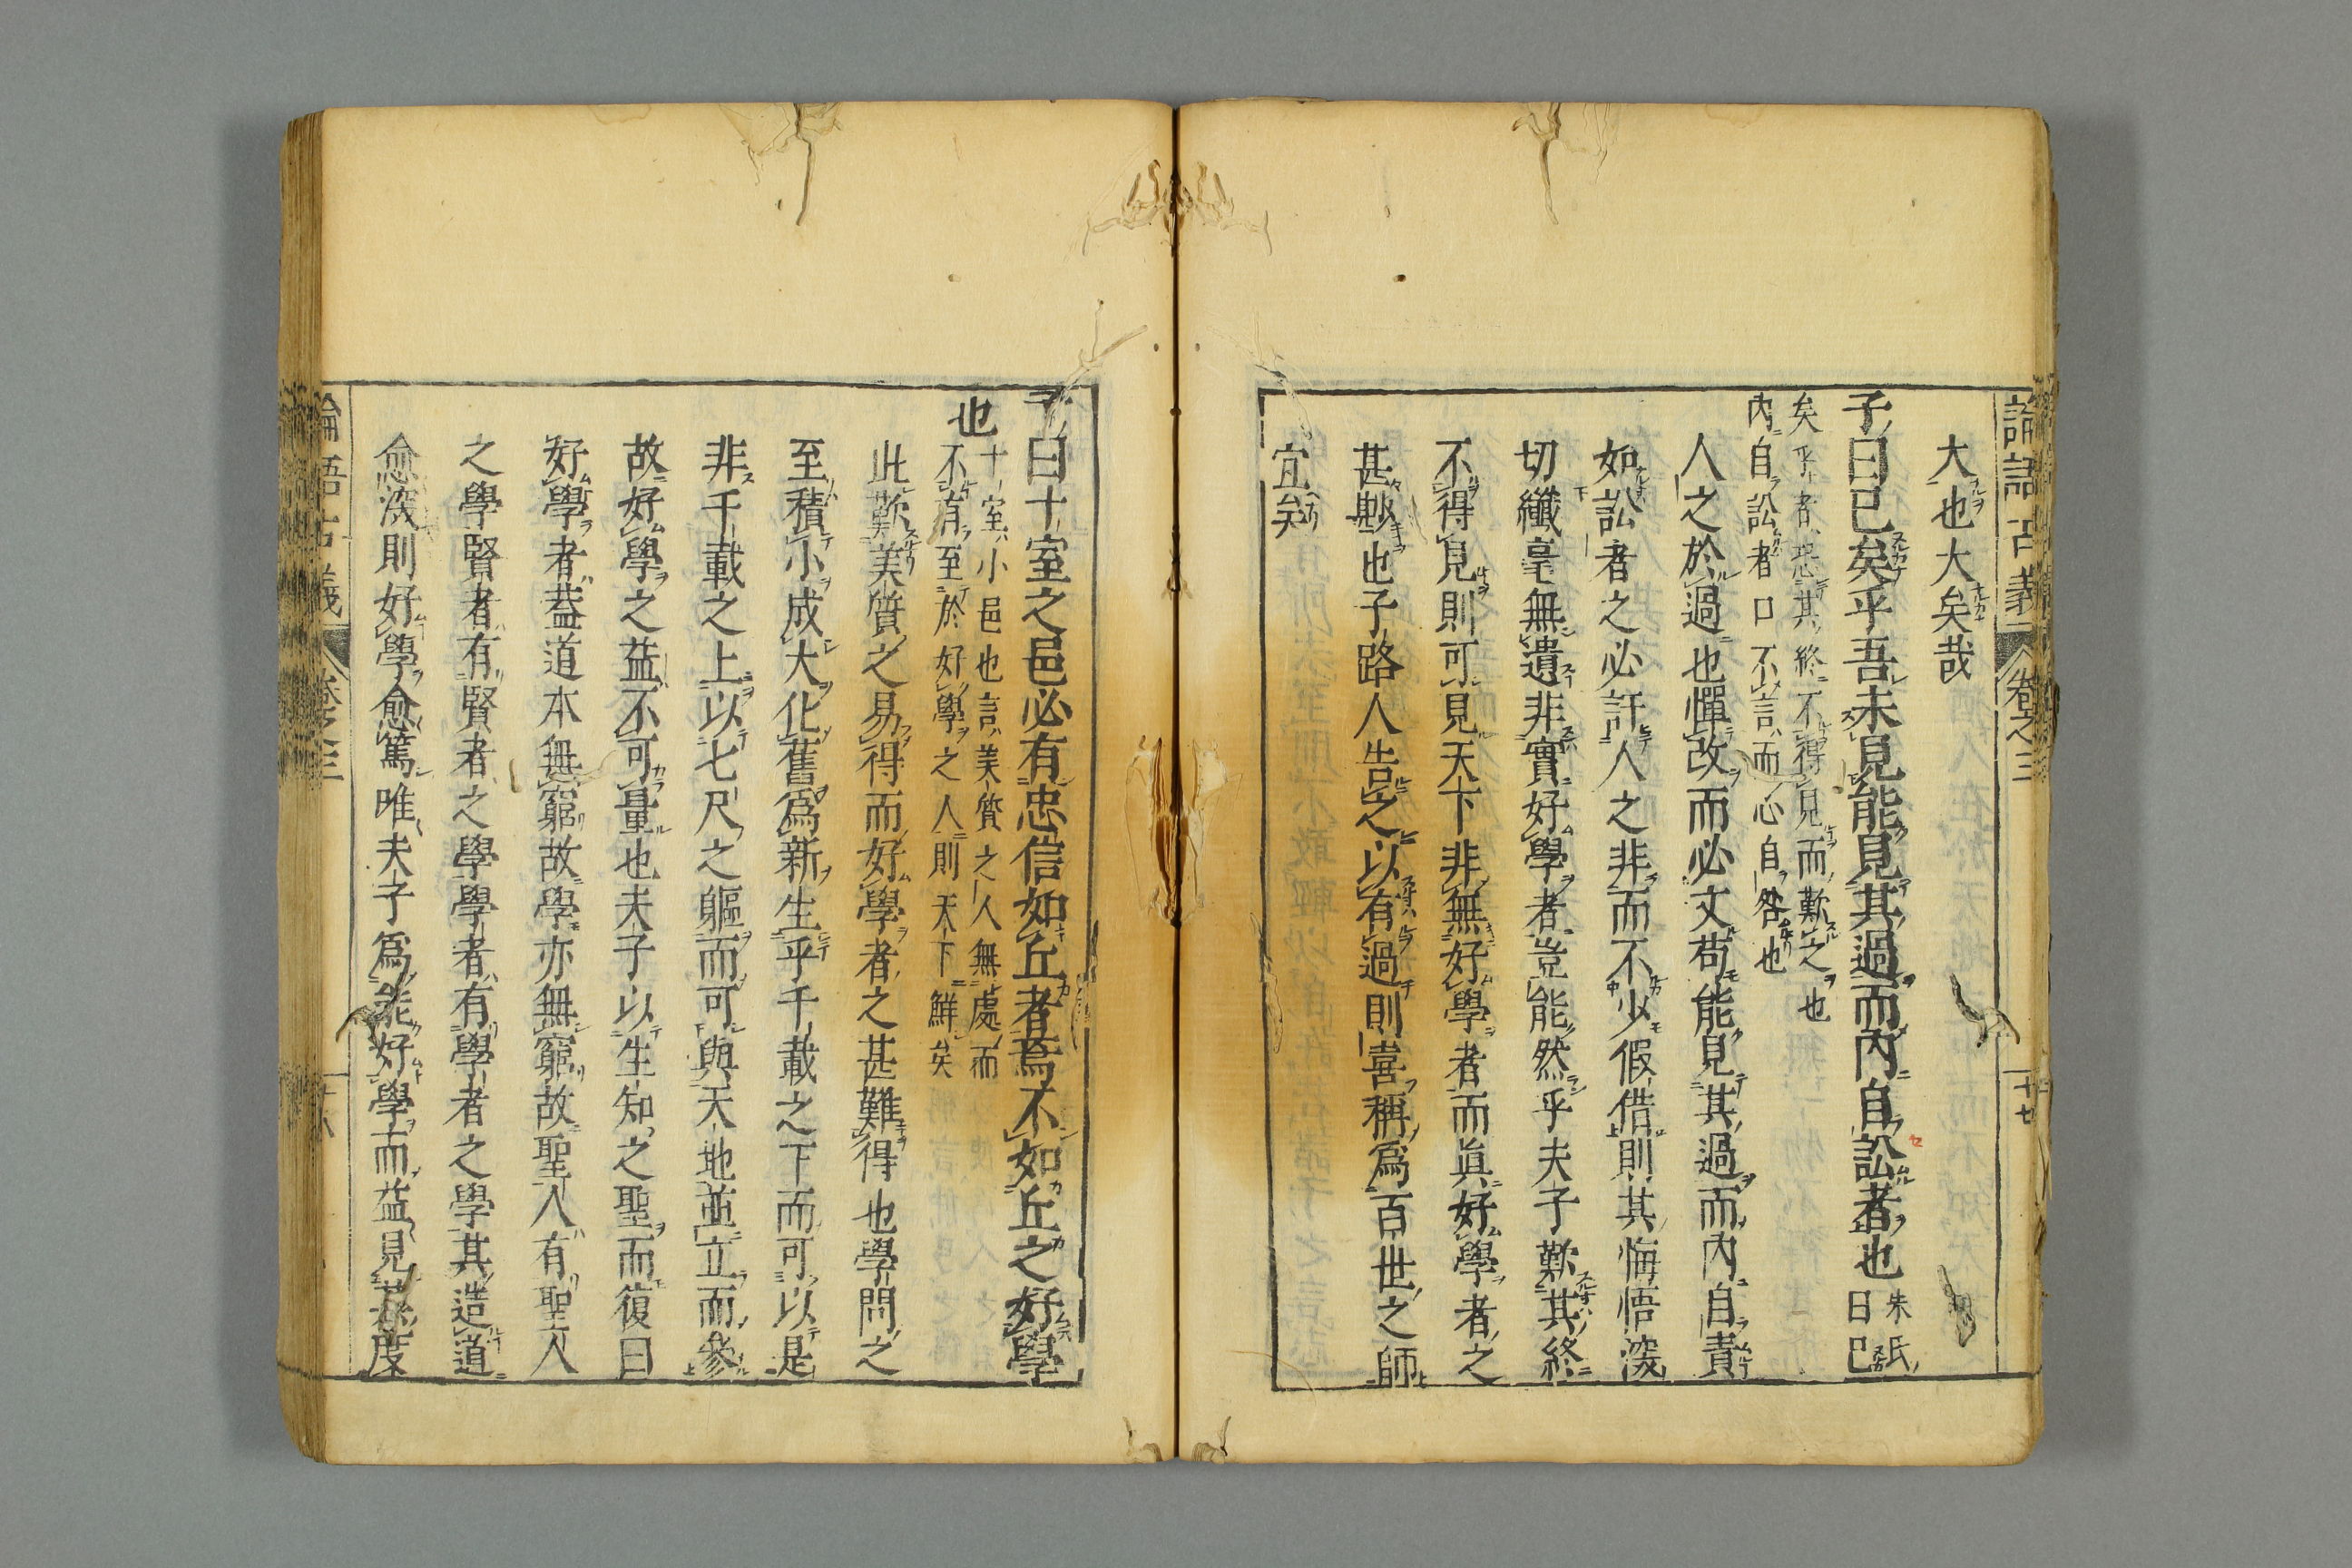 論語古義
卷之三
十七
大也大矣哉
子曰已矣乎吾未見能見其過而內自訟者也朱氏
曰已
矣乎者恐其終不得見而歎之也
內自訟者口不言而心自咎也
人之於過也憚改而必文苟能見其過而內自責
如訟者之必訐人之非而不少假借則其悔悟深
切纖毫無遺非實好學者豈能然乎夫子歎其終
不得見則可見天下非無好學者而眞好學者之
甚尠也子路人告之以有過則喜稱爲百世之師
宜矣
子曰十室之邑必有忠信如丘者焉不如丘之好學
也
十室小邑也言美質之人無處而
不有至於好學之人則天下鮮矣
此歎美質之易得而好學者之甚難得也學問之
至積小成大化舊爲新生乎千載之下而可以是
非千載之上以七尺之軀而可與天地並立而參
故好學之益不可量也夫子以生知之聖而復曰
好學者葢道本無窮故學亦無窮故聖人有聖人
之學賢者有賢者之學學者有學者之學其造道
愈深則好學愈篤唯夫子爲能好學而益見其度
論語古義
卷之三